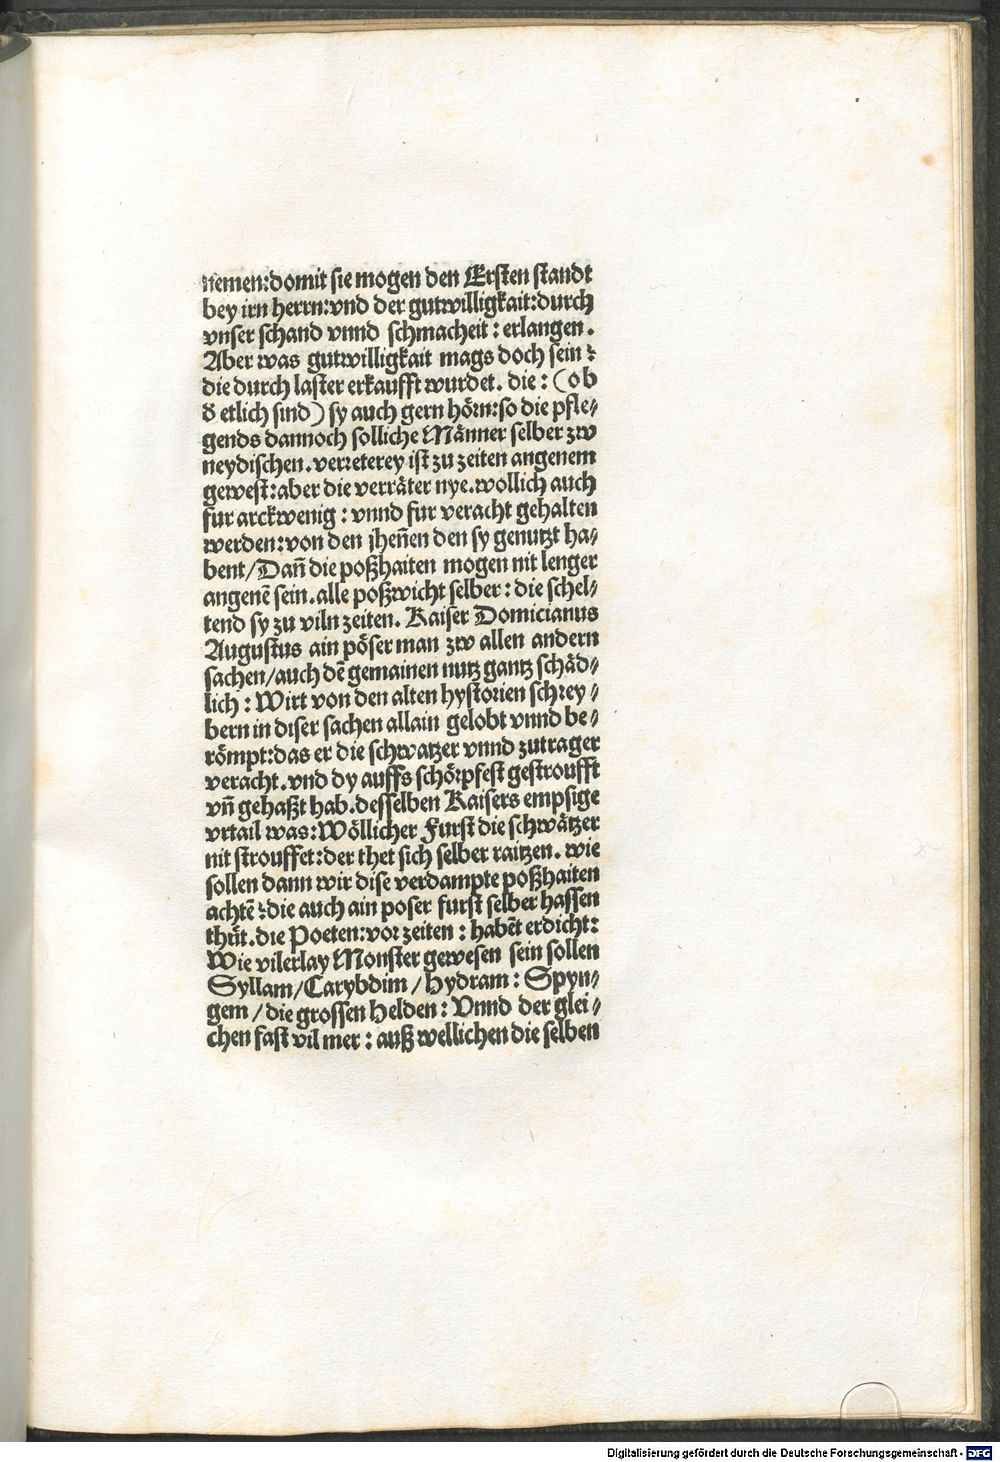 nemen:domit sie mogen den Ersten standt
bey irn herrn:vnd der gutwilligkait:durch
vnser schand vnnd schmacheit : erlangen .
Aber was gutwilligkait mags doch sein ?
die durch laster erkaufft wurdet. die : (ob
d̕ etlich sind) sy auch gern hörn:so die pfle⸗
gends dannoch solliche Männer selber zw
neydischen . verreterey ist zu zeiten angenem
gewest:aber die verräter nye.wöllich auch
fur arckwenig : vnnd fur veracht gehalten
werden:von den jheñen den sy genutzt ha⸗
bent/Dañ die poßhaiten mogen nit lenger
angenē sein.alle poßwicht selber : die schel⸗
tend sy zu viln zeiten. Kaiser Domicianus
Augustus ain pöser man zw allen andern
sachen/auch dē gemainen nutz gantz schäd⸗
lich : Wirt von den alten hystorien schrey⸗
bern in diser sachen allain gelobt vnnd be⸗
römpt:das er die schwatzer vnnd zutrager
veracht.vnd dy auffs schörpfest gestroufft
vñ gehaßt hab.desselben Kaisers empsige
vrtail was:Wöllicher Furst die schwätzer
nit strouffet:der thet sich selber raitzen. wie
sollen dann wir dise verdampte poßhaiten
achtē ?die auch ain poser furst selber hassen
thůt.die Poeten:vor zeiten : habēt erdicht:
Wie vilerlay Monster gewesen sein sollen
Syllam/Carybdim /Hydram : Spyn⸗
gem /die grossen Helden : Vnnd der glei⸗
chen fast vil mer : auß wellichen die selben
Digitalisierung gefördert durch die Deutsche Forschungsgemeinschaft - DFG